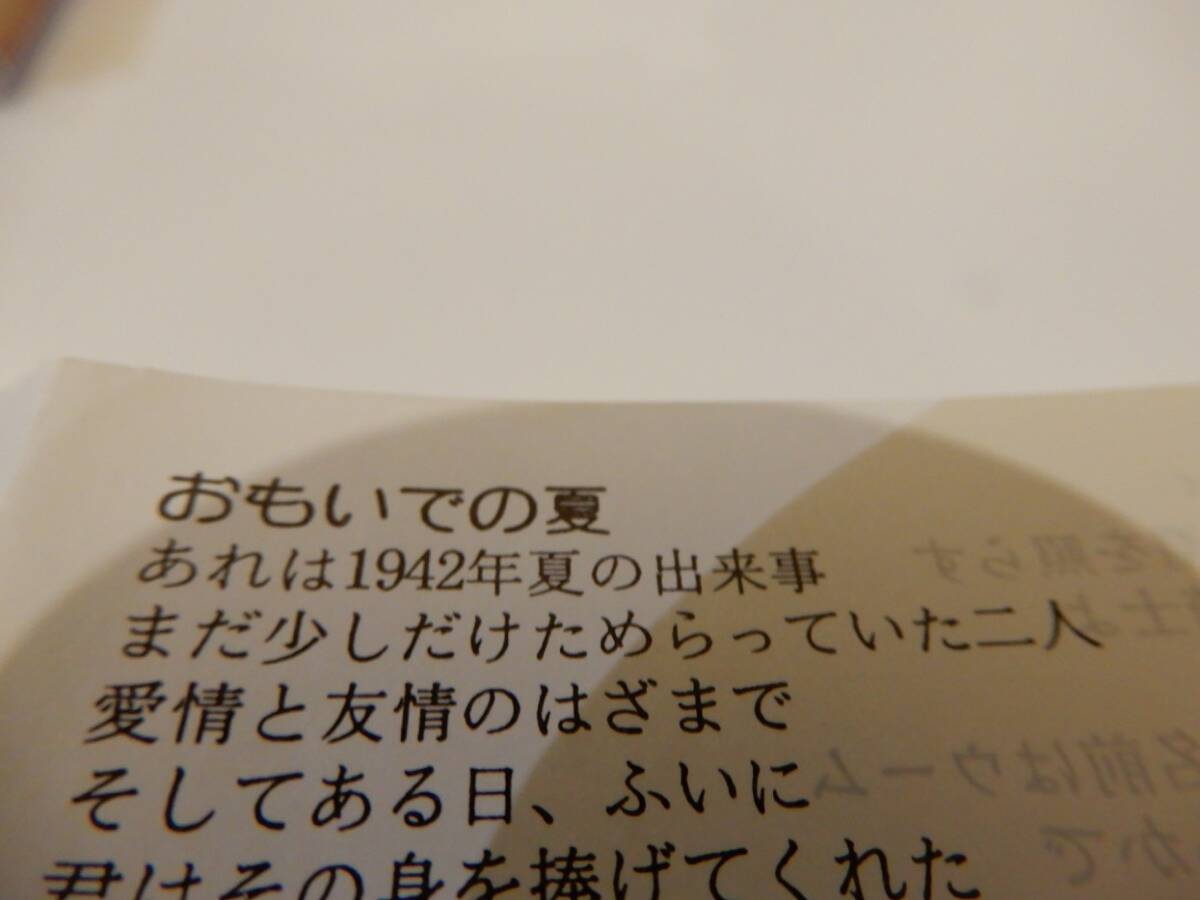 おもいでの夏
あれは1942年夏の出来事
まだ少しだけためらっていた二人
愛情と友情のはざまで
そしてある日、ふいに
君はその身を捧げてくれた
を照らす
士よ
名前はウーム
かで